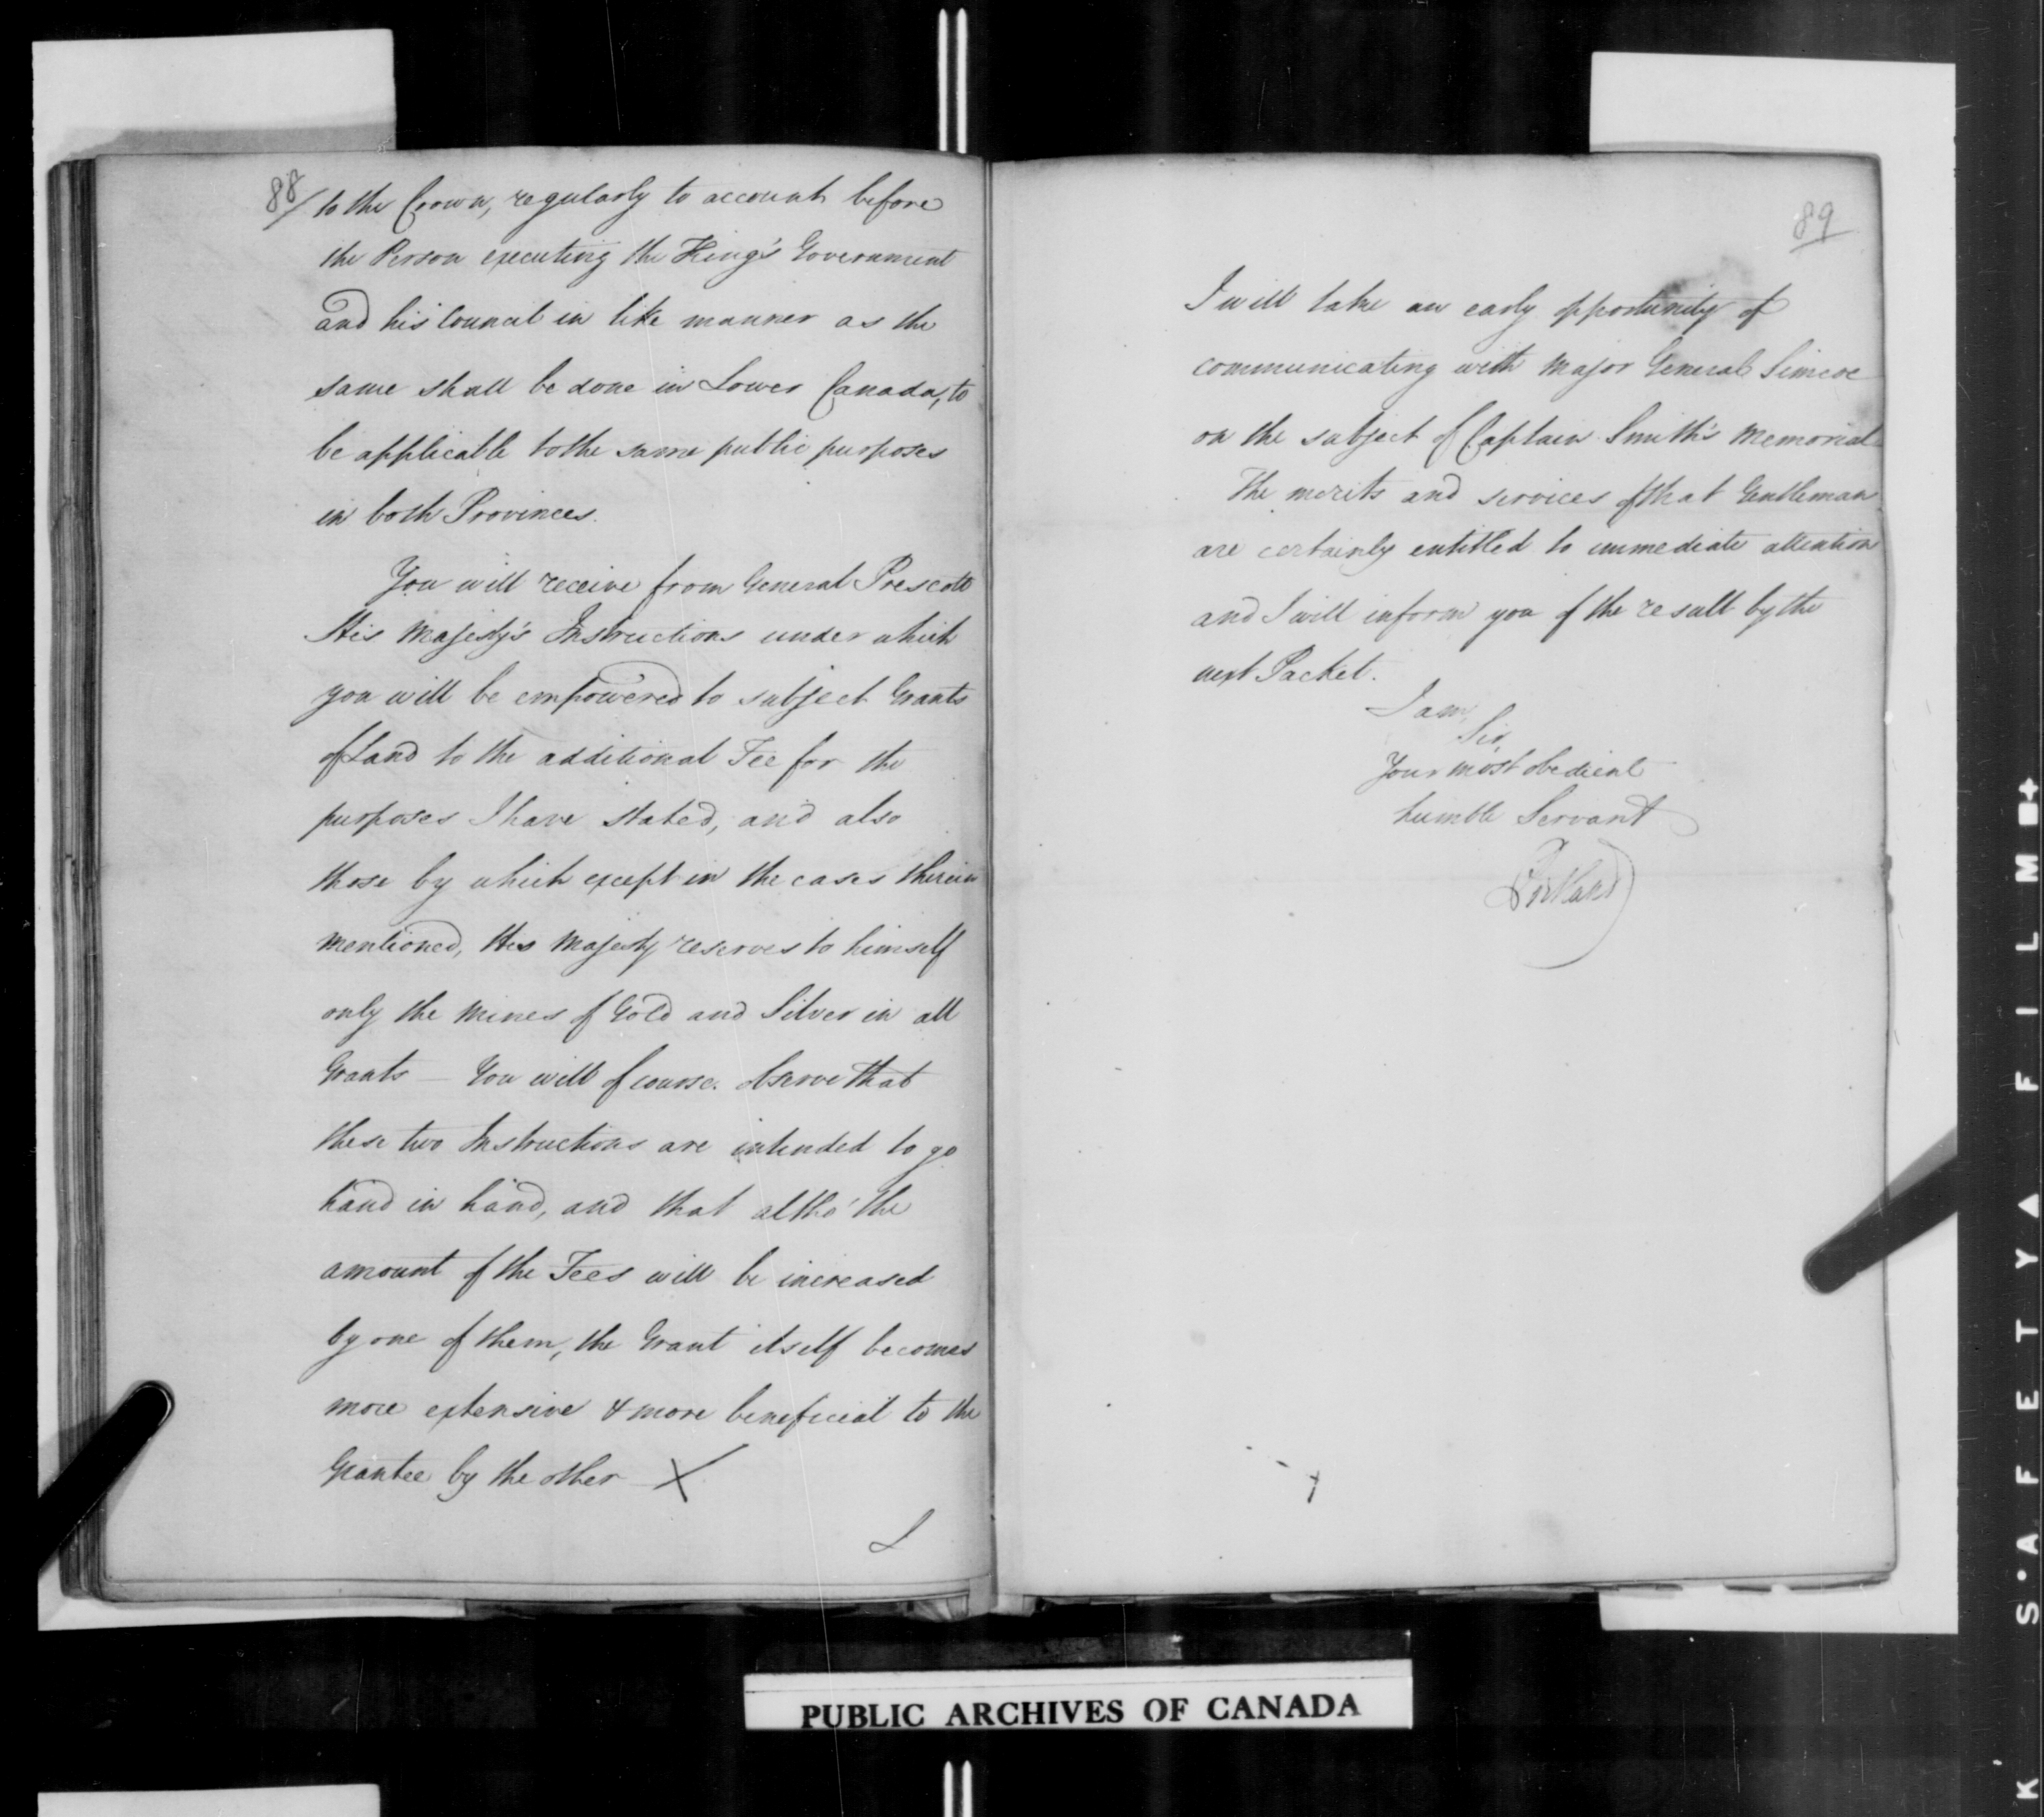 88/ to the Crown, regularly to account before
the Person executing the King's Government
and his Council in like manner as the
same shall be done in Lower Canada, to
be applicable to the same public purposes
in both Provinces.
You will receive from General Prescott
His Majesty's Instructions under which
you will be empowered to subject Grants
of Land to the additional Fee for the
purposes I have stated, and also
those by which except in the cases therein
mentioned, His Majesty reserves to himself
only the Mines of Gold and Silver in all
Grants — You will of course observe that
these two Instructions are intended to go
hand in hand, and that altho' the
amount of the Fees will be increased
by one of them, the Grant itself becomes
more extensive & more beneficial to the
Grantee by the other X
I
89
I will take an early opportunity of
communicating with Major General Simcoe
on the subject of Captain Smith's Memorial
The merits and services of that Gentleman
are certainly entitled to immediate attention
and I will inform you of the result by the
next Packet.
I am,
Sir,
Your most obedient
humble Servant
Portland
PUBLIC ARCHIVES OF CANADA
K S·AFETY▲FILM